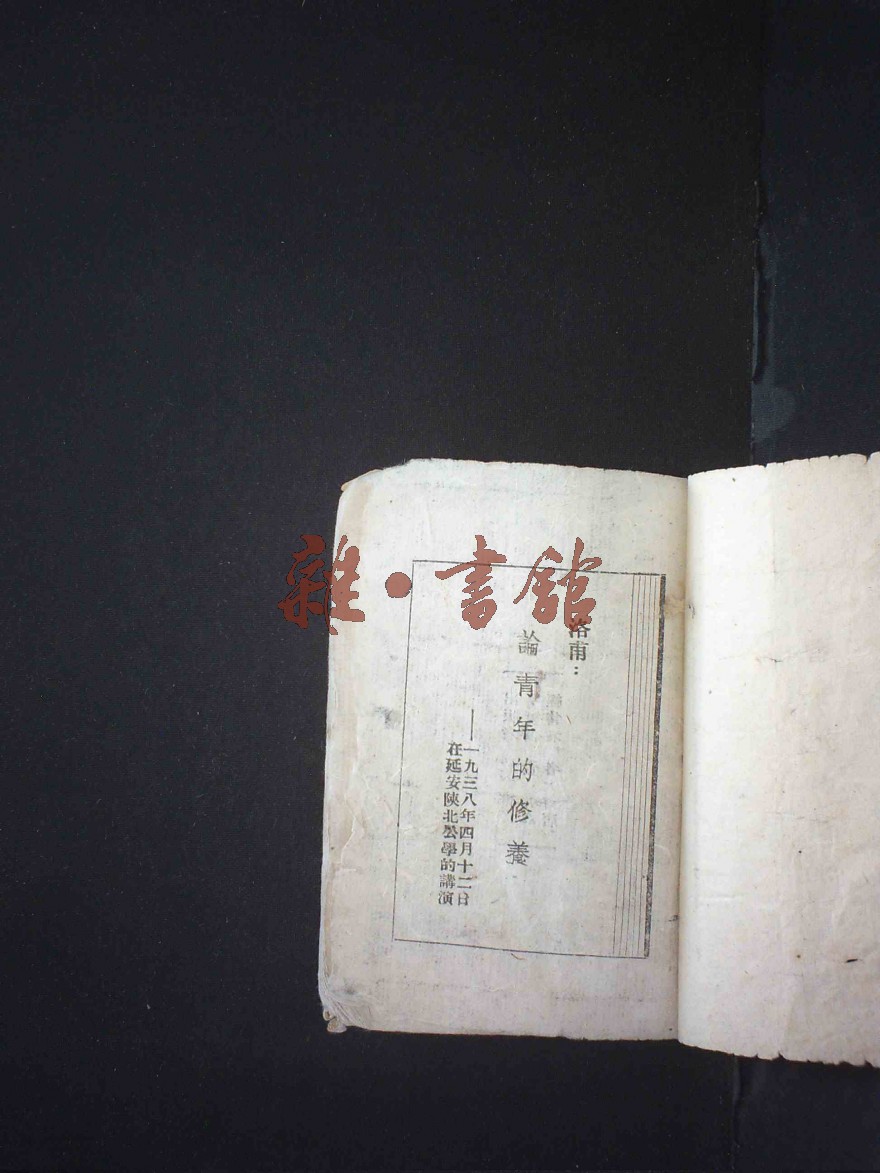 雜·書館
洛甫：
論青年的修養
——一九三八年四月十二日
在延安陝北公學的講演